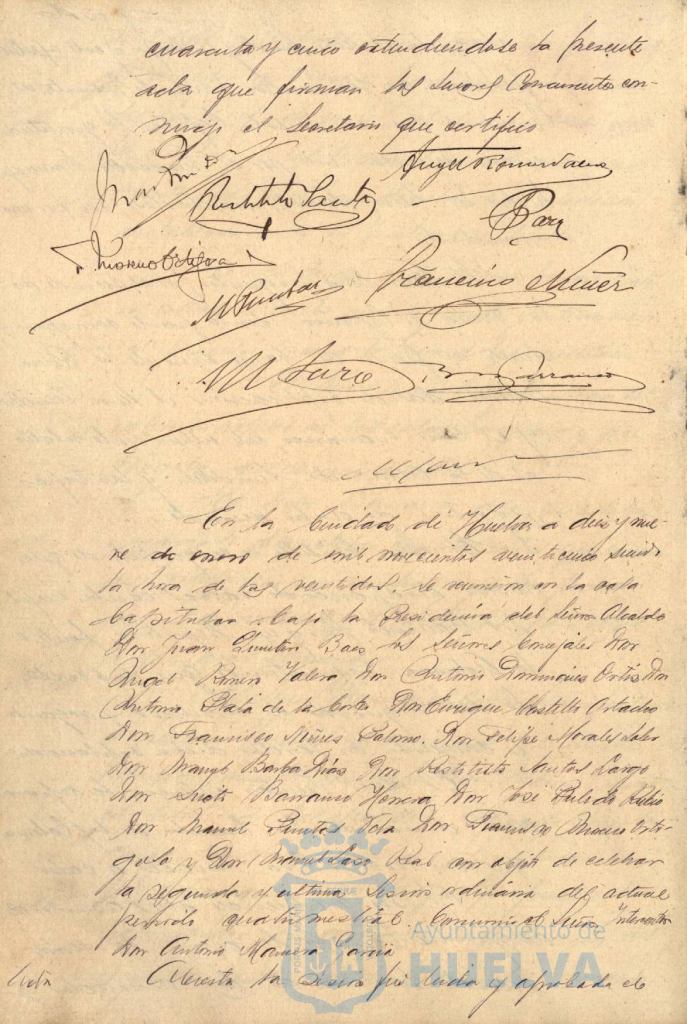 cuarenta y cinco extendiendose la presente
acta que firman los Señores Concurrentes con-
migo el Secretario que certifico
Restituto Santos
Angel Romero Valera
Moreno Ortigosa
M Puntas
Francisco Núñez
M Laso
B. Barranco
En la Ciudad de Huelva a diez y nue-
ve de enero de mil novecientos veinticinco siendo
la hora de las veintidos, se reunieron en la sala
Capitular bajo la Presidencia del Señor Alcalde
Don Juan Quintin Baes los Señores Concejales Don
Angel Romero Valera Don Antonio Dominguez Ortiz Don
Antonio de la Corte Don Enrique Castelló
Don Francisco Núñez Palomo. Don Felipe Morales
Don Manuel Barba Dias Don Restituto Santos Largo
Don Barranco Herrera Don José Pulido Rubio
Don Manuel Puntas Don Francisco Moreno Orti-
gosa y Don Manuel Laso Real con objeto de celebrar
la segunda y ultima Sesion ordinaria del actual
periodo cuatrimestral. Concurrió el Señor Interventor
Don Antonio Garcia
Acta Abierta la Sesion fué leida y aprobada el
Ayuntamiento de
HUELVA